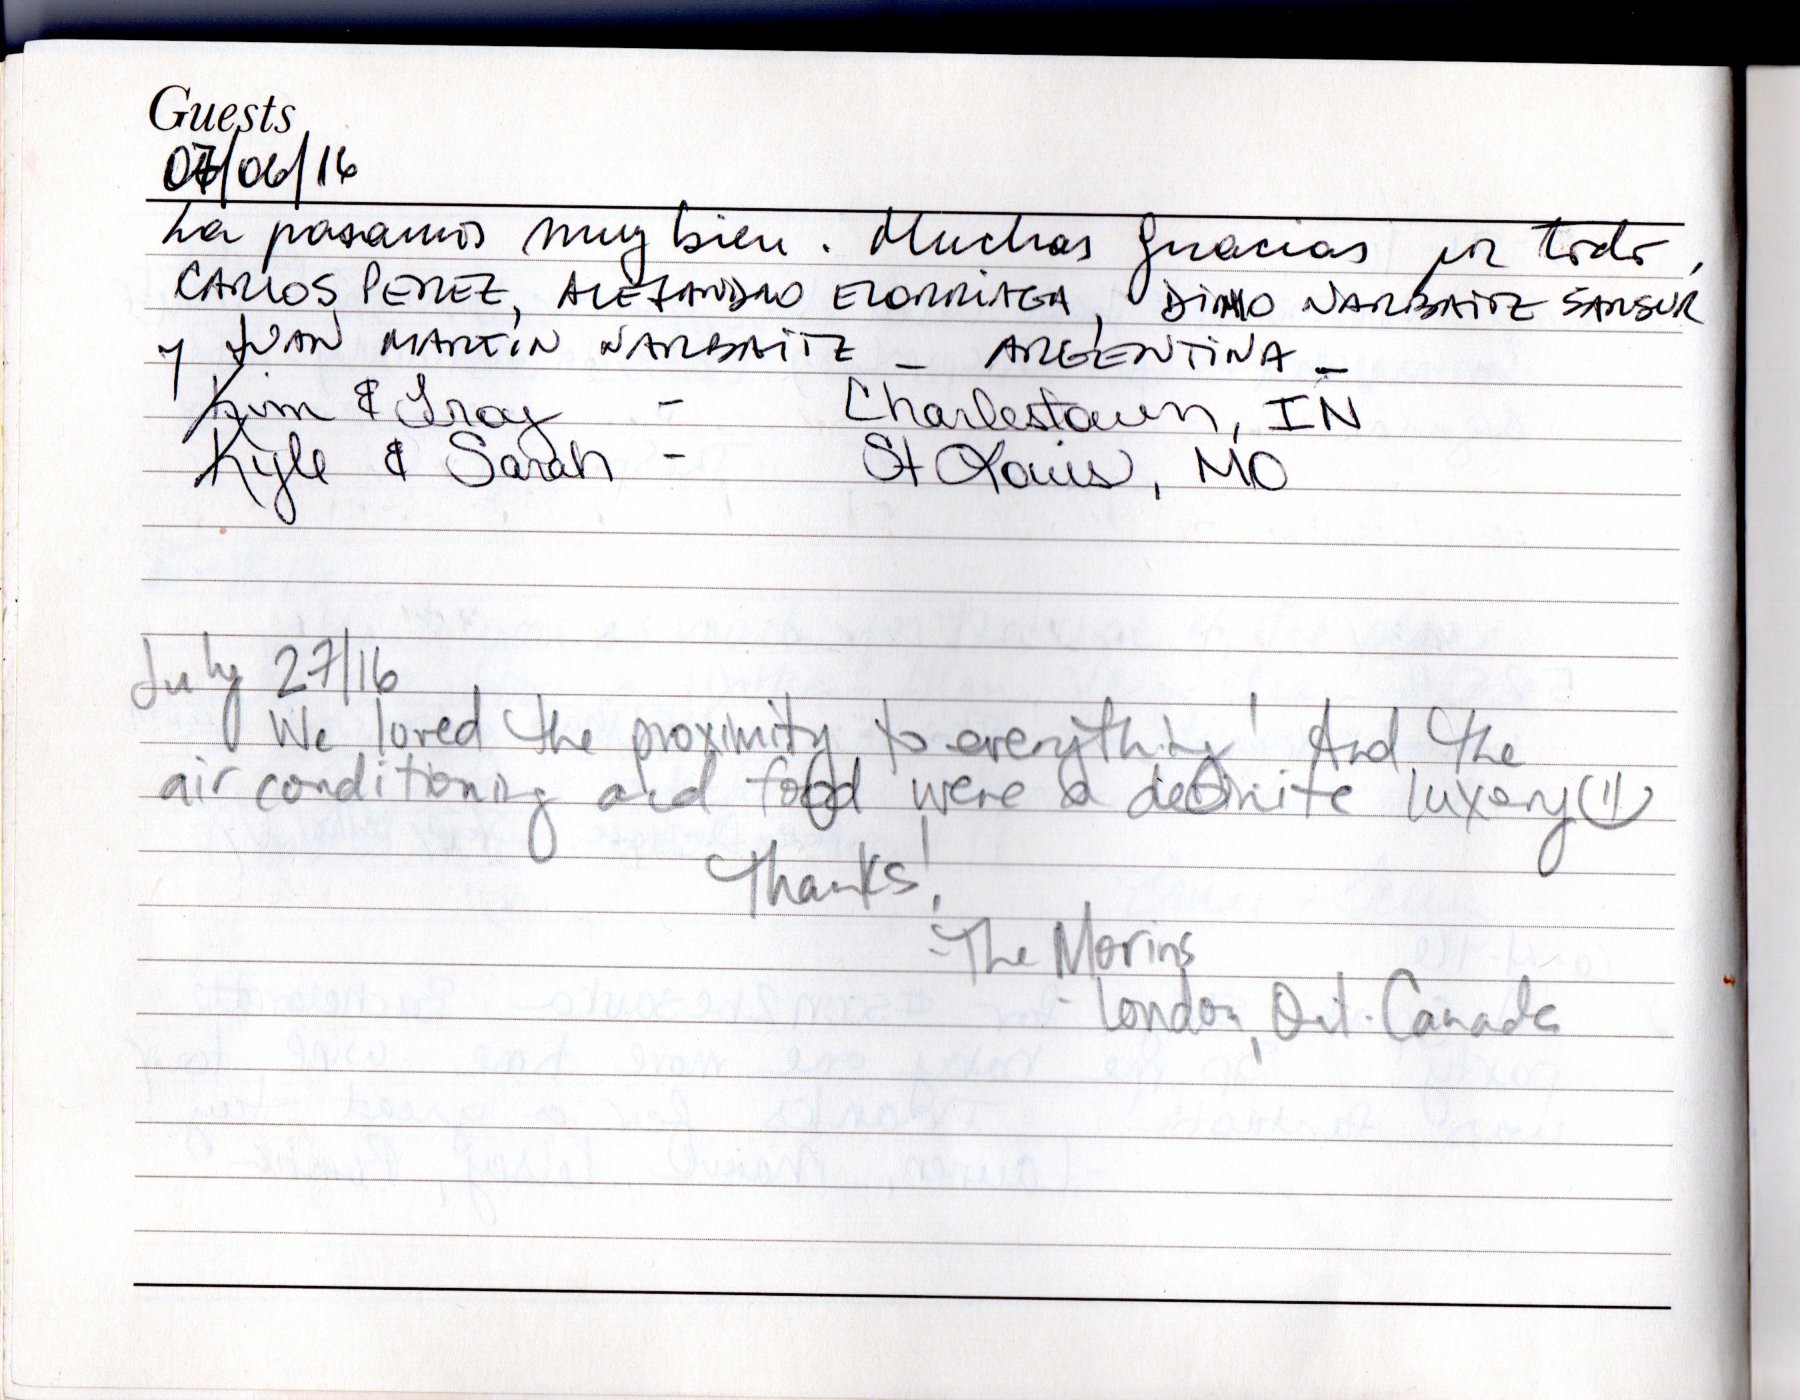 Guests
07/06/16
La pasamos muy bien. Muchas gracias por todo,
CARLOS PEREZ, ALEJANDRO ELORRIAGA, NARBAITZ SARSUR
y JUAN MARTIN NARBAITZ - ARGENTINA -
Kim & Troy - Charlestown, IN
Kyle & Sarah - St Louis, MO
July 27/16
We loved the proximity to everything! And the
air conditioning and food were a definite luxury :)
Thanks!
- The Morins
- London, Ont. Canada